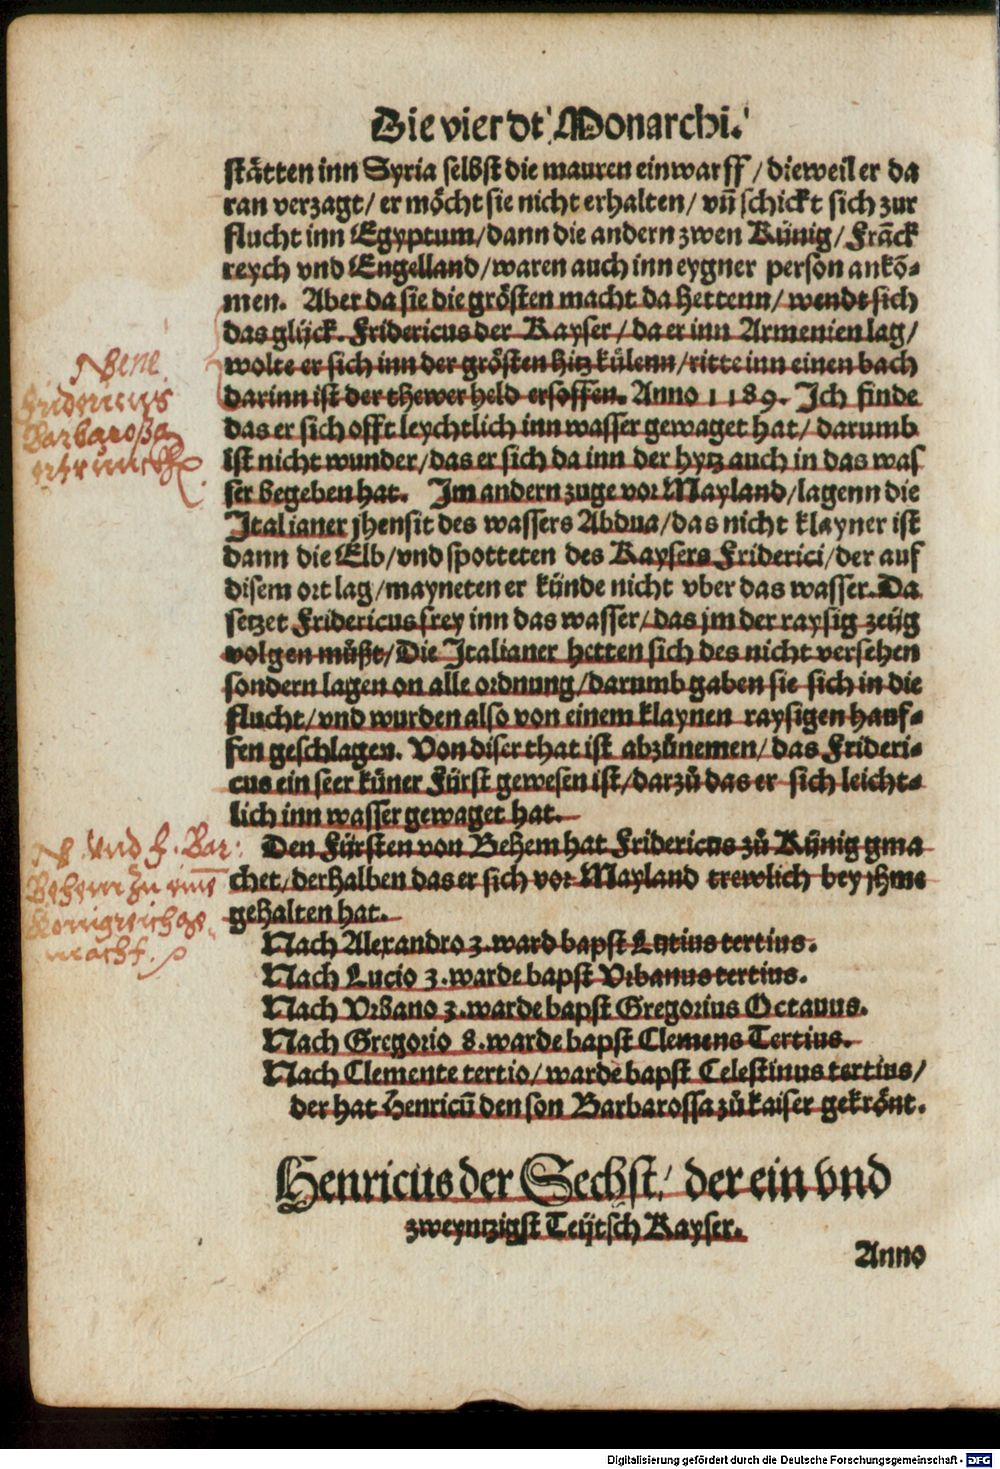 Die vierdt Monarchi.
stätten inn Syria selbst die mauren einwarff / dieweil er da
ran verzagt / er möcht sie nicht erhalten / vñ schickt sich zur
flucht inn Egyptum / dann die andern zwen Künig / Frãck
reych vnd Engelland / waren auch inn eygner person ankõ⸗
men. Aber da sie die grösten macht da hettenn / wendt sich
das glück. Fridericus der Kayser / da er inn Armenien lag /
wolte er sich inn der grösten hitz külenn / ritte inn einen bach
darinn ist der thewer held ersoffen. Anno 1189. Ich finde
das er sich offt leychtlich inn wasser gewaget hat / darumb
ist nicht wunder / das er sich da inn der hytz auch in das was
ser begeben hat. Im andern zuge vor Mayland / lagenn die
Italianer jhensit des wassers Abdua / das nicht klayner ist
dann die Elb / vnd spotteten des Kaysers Friderici / der auf
disem ort lag / mayneten er künde nicht vber das wasser. Da
setzet Fridericus frey inn das wasser / das jm der raysig zeüg
volgen müßt / Die Italianer hetten sich des nicht versehen
sondern lagen on alle ordnung / darumb gaben sie sich in die
flucht / vnd wurden also von einem klaynen raysigen hauf⸗
fen geschlagen. Von diser that ist abzůnemen / das Frideri⸗
cus ein seer küner Fürst gewesen ist / darzů das er sich leicht⸗
lich inn wasser gewaget hat.
Den Fürsten von Behem hat Fridericus zů Künig gma
chet / derhalben das er sich vor Mayland trewlich bey jhme
gehalten hat.
Nach Alexandro 3. ward bapst Lucius tertius.
Nach Lucio 3. warde bapst Vrbanus tertius.
Nach Vrbano 3. warde bapst Gregorius Octauus.
Nach Gregorio 8. warde bapst Clemens Tertius.
Nach Clemente tertio / warde bapst Celestinus tertius /
der hat Henricũ den son Barbarossa zů kaiser gekrönt.
Henricus der Sechst / der ein vnd
zweyntzigst Teütsch Kayser.
Anno
Nene
Fridericus
Barbaroßa
Behem zu eine
Königreich ge
macht.
Digitalisierung gefördert durch die Deutsche Forschungsgemeinschaft - DFG